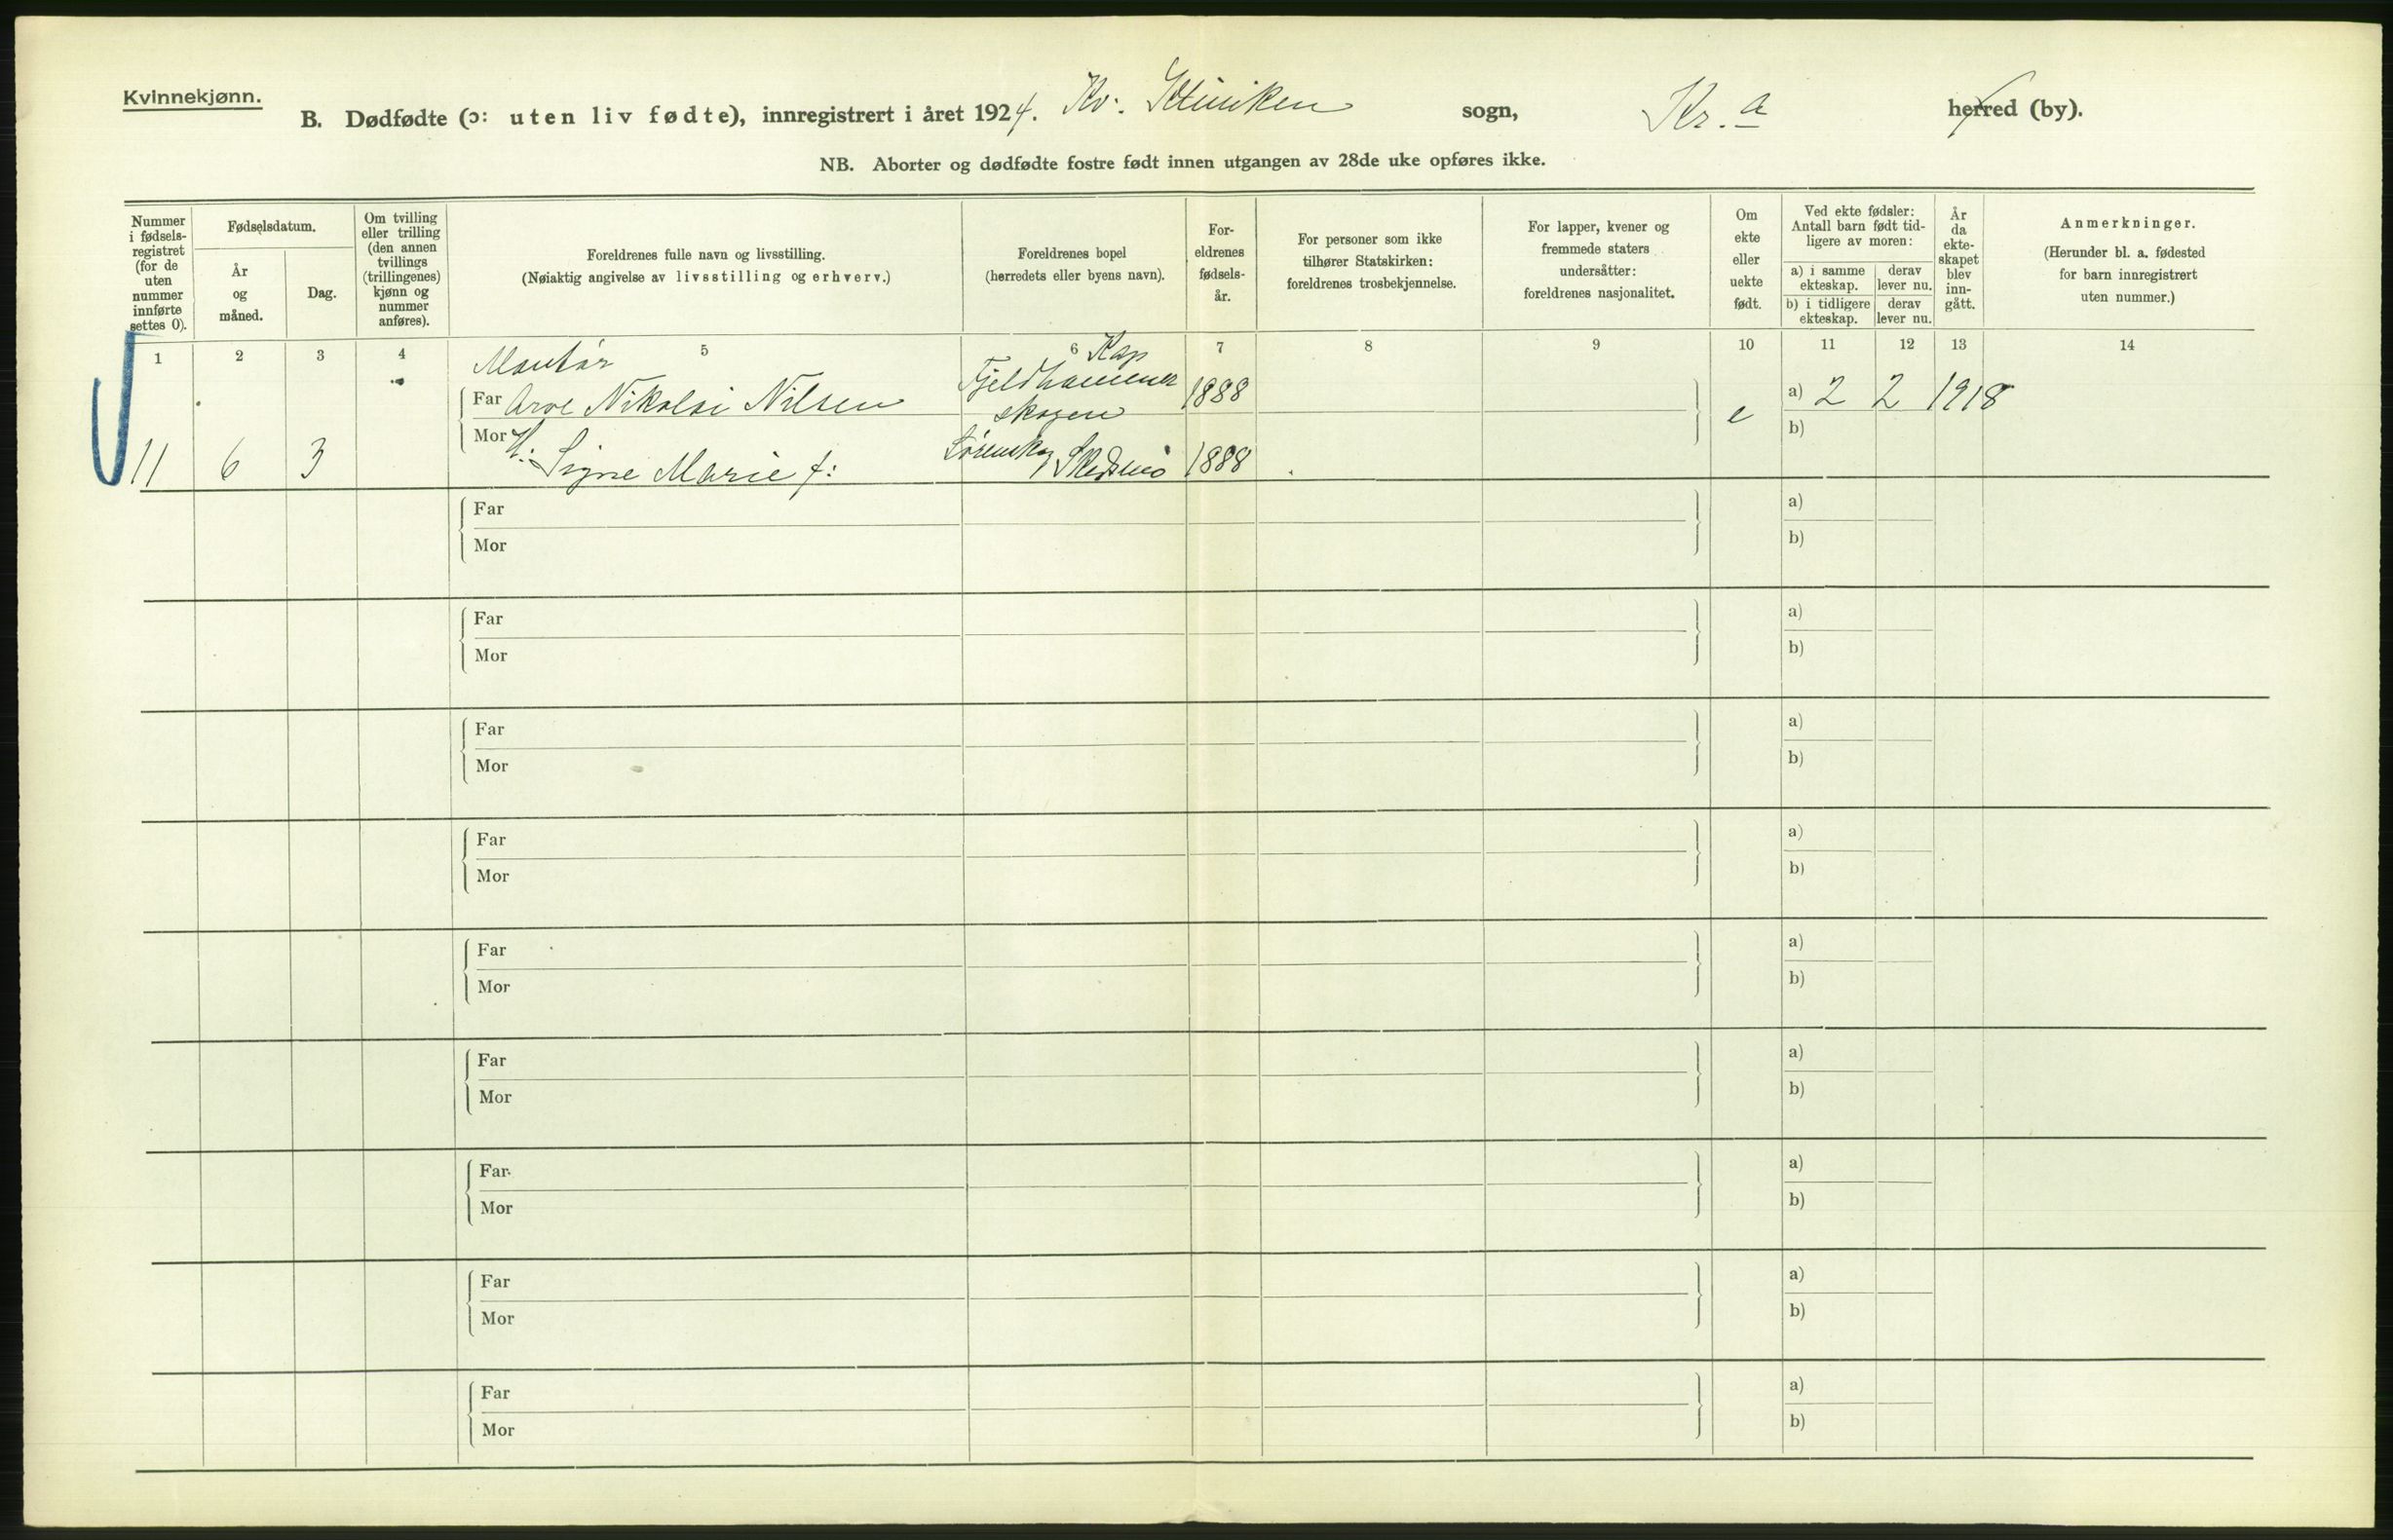 Kvinnekjønn.
B. Dødfødte (ɔ: uten liv fødte), innregistrert i året 1924. Kv. Kliniken sogn, Kr.a herred (by).
NB. Aborter og dødfødte fostre født innen utgangen av 28de uke opføres ikke.
Nummer i fødsels-registret (for de uten nummer innførte settes 0).
Fødselsdatum.
År og måned.
Dag.
Om tvilling eller trilling (den annen tvillings (trillingenes) kjønn og nummer anføres).
Foreldrenes fulle navn og livsstilling.
(Nøiaktig angivelse av livsstilling og erhverv.)
Foreldrenes bopel
(herredets eller byens navn).
For-eldrenes fødsels-år.
For personer som ikke tilhører Statskirken: foreldrenes trosbekjennelse.
For lapper, kvener og fremmede staters undersåtter: foreldrenes nasjonalitet.
Om ekte eller uekte født.
Ved ekte fødsler: Antall barn født tid-ligere av moren:
a) i samme ekteskap.
derav lever nu.
b) i tidligere ekteskap.
derav lever nu.
År da ekte-skapet blev inn-gått.
Anmerkninger.
(Herunder bl. a. fødested for barn innregistrert uten nummer.)
1 2 3 4 5 6 7 8 9 10 11 12 13 14
Montør
Far Arve Nikolai Nilsen Fjeldhammer skogen 1888 e a) 2 2 1918
b)
11 6 3 Mor H. Signe Marie f: Lørenskog Skedsmo 1888
Far a)
Mor b)
Far a)
Mor b)
Far a)
Mor b)
Far a)
Mor b)
Far a)
Mor b)
Far a)
Mor b)
Far a)
Mor b)
Far a)
Mor b)
Far a)
Mor b)